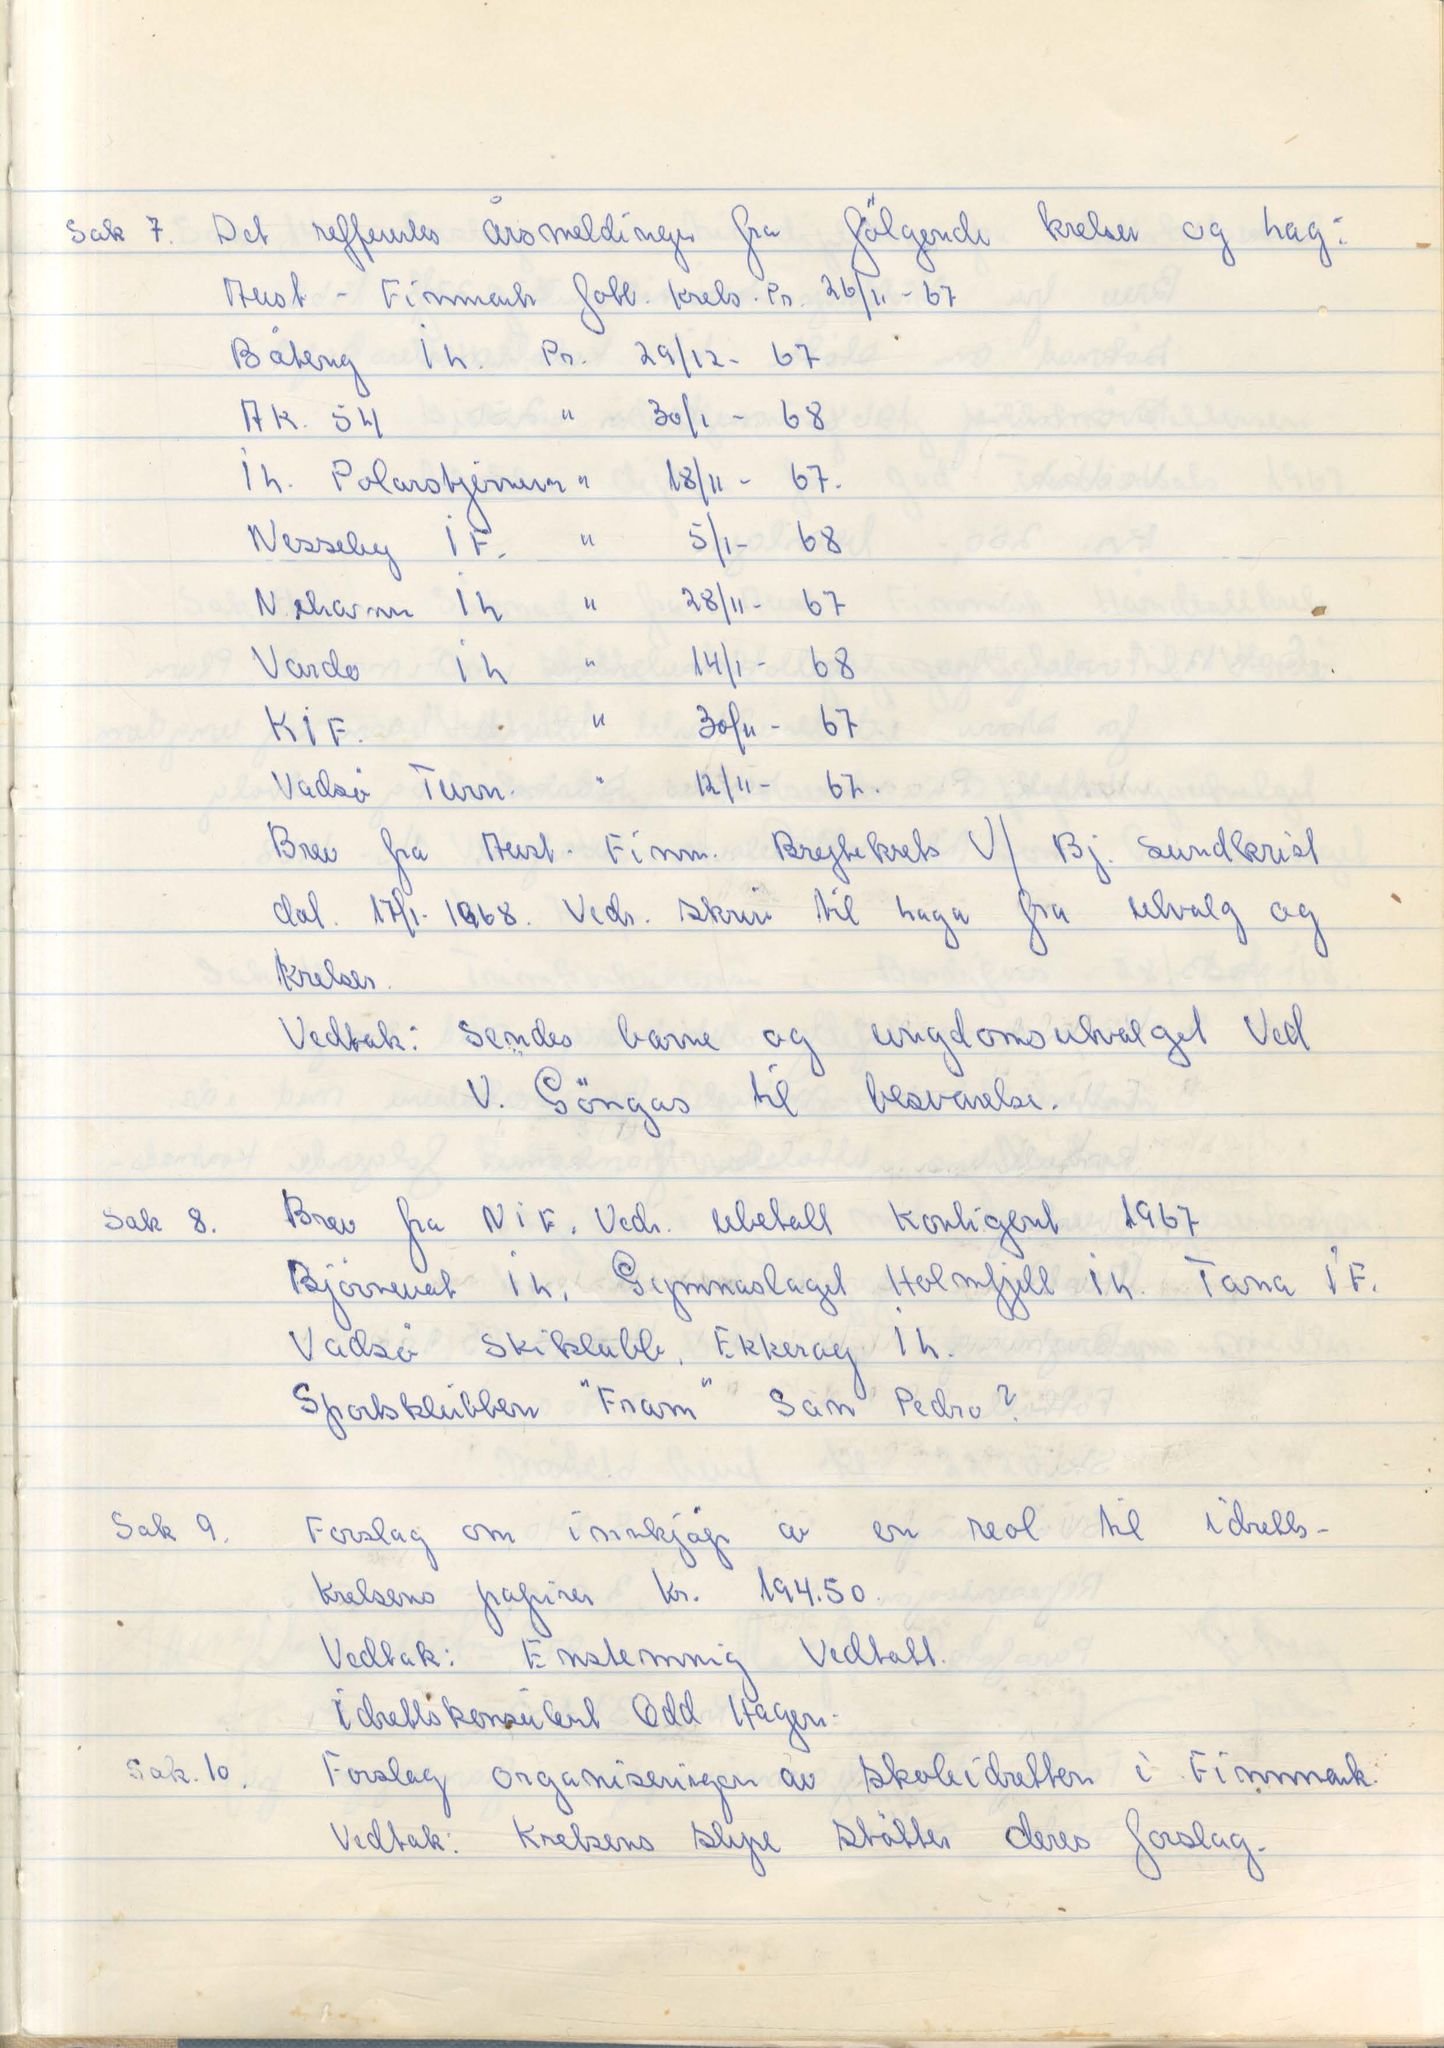 Sak 7. Det reffertes årsmeldinger fra følgende kretser og lag:
Aust - Finnmark fotb. krets. Pr. 26/11 - 67
Båteng IL. Pr. 29/12 - 67
AK. 54 " 30/1 - 68
IL. Polarstjernen " 18/11 - 67.
Nesseby IF. " 5/1 - 68
N. Varanger IL " 28/11 - 67
Vardø IL " 14/1 - 68
KIF. " 30/11 - 67
Vadsø Turn. " 12/11 - 67.
Brev fra Aust - Finn. Brytekrets V/ Bj. Sundkvist
dat. 17/1- 1968. Vedr. skriv til laga fra utvalg og
kretser.
Vedtak: Sendes barne og ungdomsutvalget Ved
V. Göngas til besvarelse.
Sak 8. Brev fra NIF. Vedr. ubetalt kontigent 1967
Bjørnevat IL, Gymnaslaget Holmfjell IL. Tana IF.
Vadsø Skiklubb, Ekkerøy IL.
Sportsklubben "Fram" San Pedro?
Sak 9. Forslag om innkjøp av en reol til idretts-
kretsens papirer kr. 194.50.
Vedtak: Enstemmig Vedtatt.
Idrettskonsulent Odd Hagen.
Sak. 10. Forslag organiseringen av skoleidretten i Finnmark.
Vedtak: Kretsens styre støtter deres forslag.